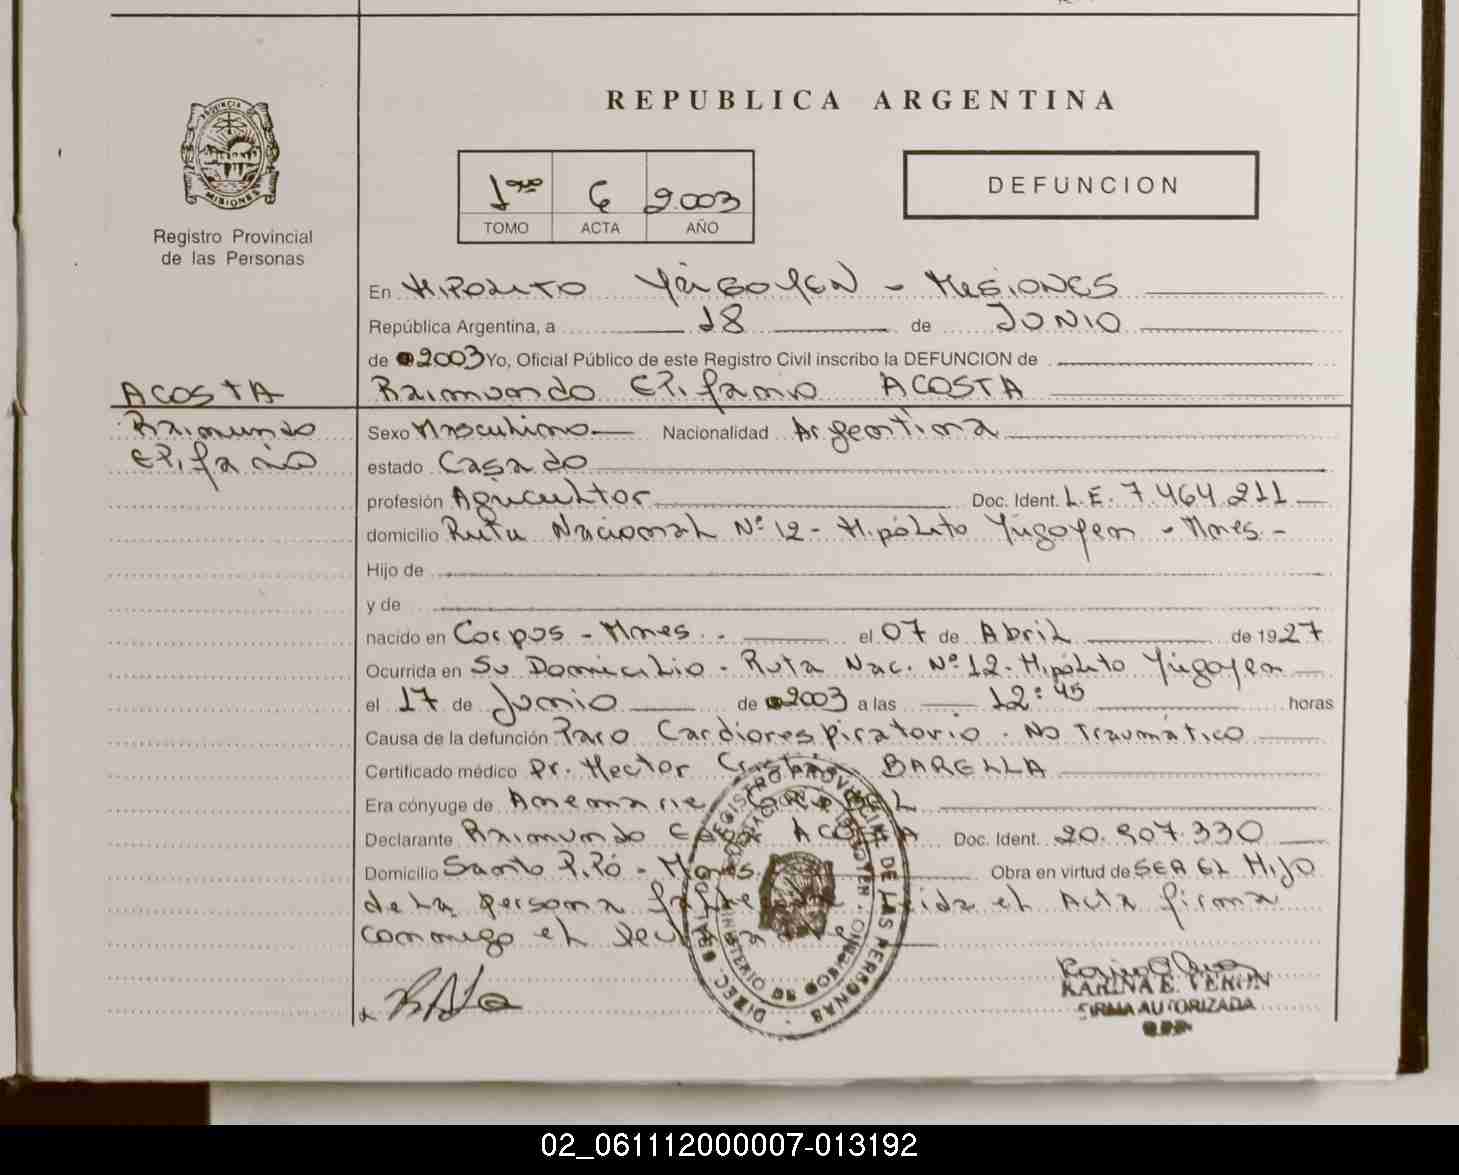 REPUBLICA ARGENTINA
PROVINCIA DE MISIONES
Registro Provincial
de las Personas
1ro 6 2.003
TOMO ACTA AÑO
DEFUNCION
En HIPOLITO YRIGOYEN - MISIONES
República Argentina, a 18 de JUNIO
de 2003 Yo, Oficial Público de este Registro Civil inscribo la DEFUNCION de
Raimundo EPifanio ACOSTA
ACOSTA
Raimundo
EPifanio
Sexo Masculino Nacionalidad Argentina
estado Casado
profesión Agricultor Doc. Ident. L.E. 7.464.211
domicilio Ruta Nacional Nº 12 - Hipólito Yrigoyen - Mnes. -
Hijo de
y de
nacido en Corpus - Mnes. - el 07 de Abril de 1927
Ocurrida en Su Domicilio - Ruta Nac. Nº 12 - Hipólito Yrigoyen
el 17 de Junio de 2003 a las 12:45 horas
Causa de la defunción Paro Cardiorespiratorio - No Traumático
Certificado médico Dr. Hector BARELLA
Era cónyuge de Anemarie
Declarante Raimundo ACOSTA Doc. Ident. 20.907.330
Domicilio Santo Pipó - Mnes. Obra en virtud de SER EL HIJO
de la persona Leida el Acta firma
conmigo el
DIREC. GRAL. DEL REGISTRO PROVINCIAL DE LAS PERSONAS
KARINA E. VERON
FIRMA AUTORIZADA
02_061112000007-013192